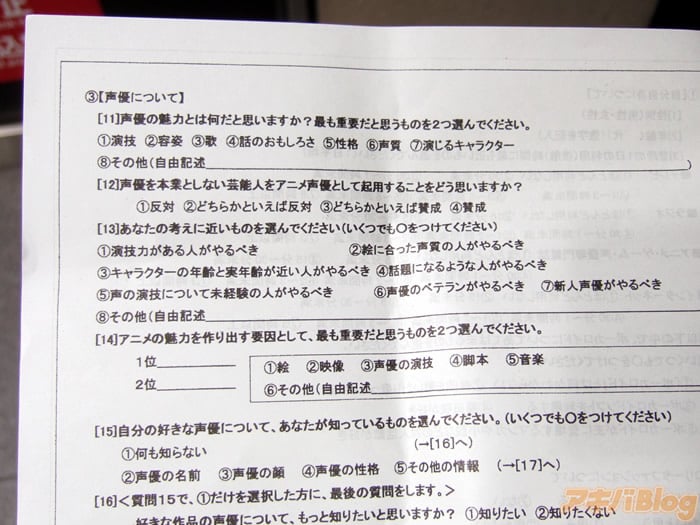 ③【声優について】
[11]声優の魅力とは何だと思いますか？最も重要だと思うものを2つ選んでください。
①演技 ②容姿 ③歌 ④話のおもしろさ ⑤性格 ⑥声質 ⑦演じるキャラクター
⑧その他(自由記述 )
[12]声優を本業としない芸能人をアニメ声優として起用することをどう思いますか？
①反対 ②どちらかといえば反対 ③どちらかといえば賛成 ④賛成
[13]あなたの考えに近いものを選んでください(いくつでも○をつけてください)
①演技力がある人がやるべき ②絵に合った声質の人がやるべき
③キャラクターの年齢と実年齢が近い人がやるべき ④話題になるような人がやるべき
⑤声の演技について未経験の人がやるべき ⑥声優のベテランがやるべき ⑦新人声優がやるべき
⑧その他(自由記述
[14]アニメの魅力を作り出す要因として、最も重要だと思うものを2つ選んでください。
1位 ①絵 ②映像 ③声優の演技 ④脚本 ⑤音楽
2位 ⑥その他(自由記述
[15]自分の好きな声優について、あなたが知っているものを選んでください。(いくつでも○をつけてください)
①何も知らない (→[16]へ)
②声優の名前 ③声優の顔 ④声優の性格 ⑤その他の情報 (→[17]へ)
[16]＜質問15で、①だけを選択した方に、最後の質問をします。＞
好きな作品の声優について、もっと知りたいと思いますか？ ①知りたい ②知りたくない
アキバBlog